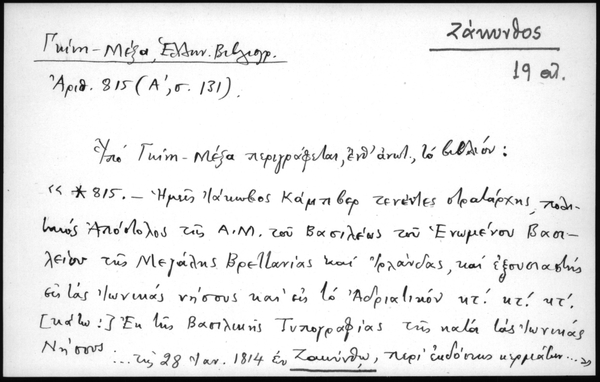 Ζάκυνθος
Γκίνη-Μέξα, Ἑλλην. Βιβλιογρ.
19 αἰ.
Ἀριθ. 815 (Α', σ. 131).
Ὑπό Γκίνη-Μέξα περιγράφεται, ἐνθ' ἀνωτ., τό βιβλίον:
"*815. - Ἡμεῖς Ἰάκωβος Κάμπβερ τενέντες στρατάρχης, πολι-
τικός Ἀπόστολος τῆς Α.Μ. τοῦ Βασιλέως τοῦ Ἑνωμένου Βασι-
λείου τῆς Μεγάλης Βρεττανίας καί Ἰρλάνδας, καί ἐξουσιαστής
εἰς τάς Ἰωνικάς νήσους καί εἰς τό Ἀδριατικόν κτ! κτ! κτ!
[κάτω:] Ἐκ τῆς Βασιλικῆς Τυπογραφίας τῆς κατά τάς Ἰωνικάς
Νήσους ... τῆς 28 Ἰαν. 1814 ἐν Ζακύνθῳ, περί ἐκδόσεως κερμάτων...»